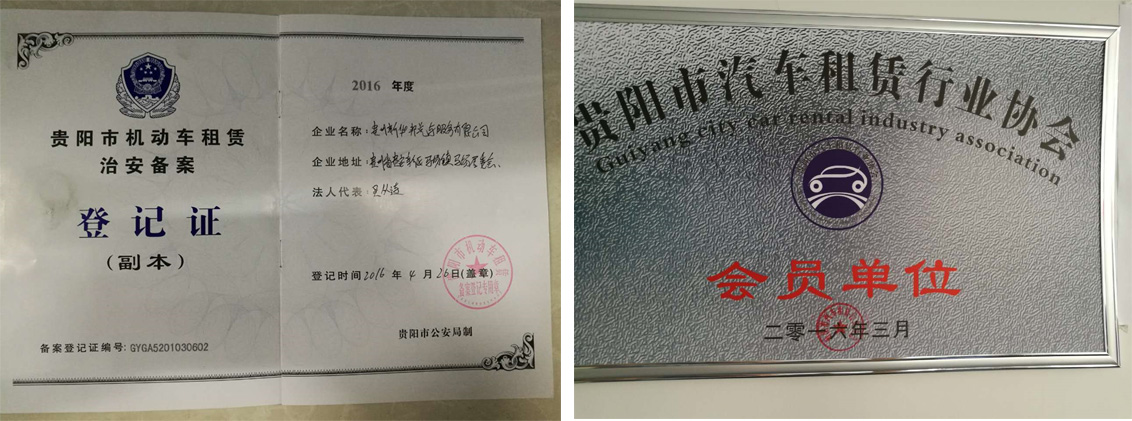 贵阳市机动车租赁
治安备案
登记证
(副本)
备案登记证编号:GYGA5201030602
2016 年度
企业名称:
企业地址:
法人代表:
登记时间2016 年 4 月 26日(盖章)
贵阳市机动车租赁
备案登记专用章
贵阳市公安局制
贵阳市汽车租赁行业协会
Guiyang city car rental industry association
会员单位
二零一六年三月